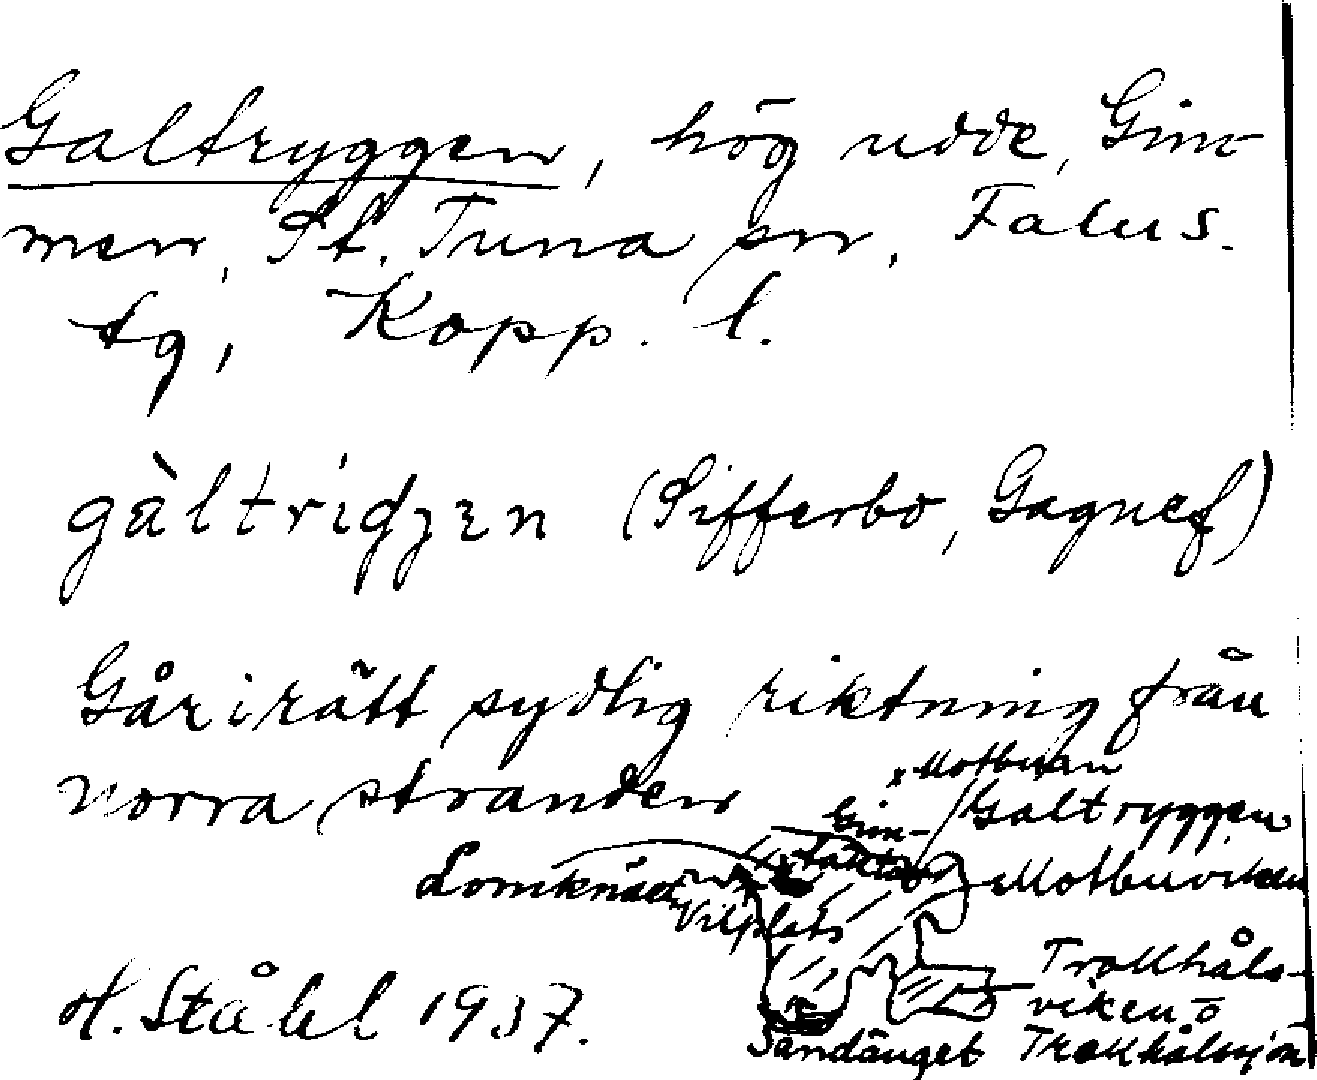 Galtryggen, hög udde, Gim-
men, St. Tuna sn, Falu s.
tg, Kopp. l.
gàltrìgzen (Sifferbo, Gagnef)
Går i rätt sydlig riktning från
norra stranden
x Motbuan
Galtryggen
Lomknäet
Motbuviken
Vilplats
Trollhåls-
viken o
Sandänget Trollhålssjön
H. Ståhl 1937.